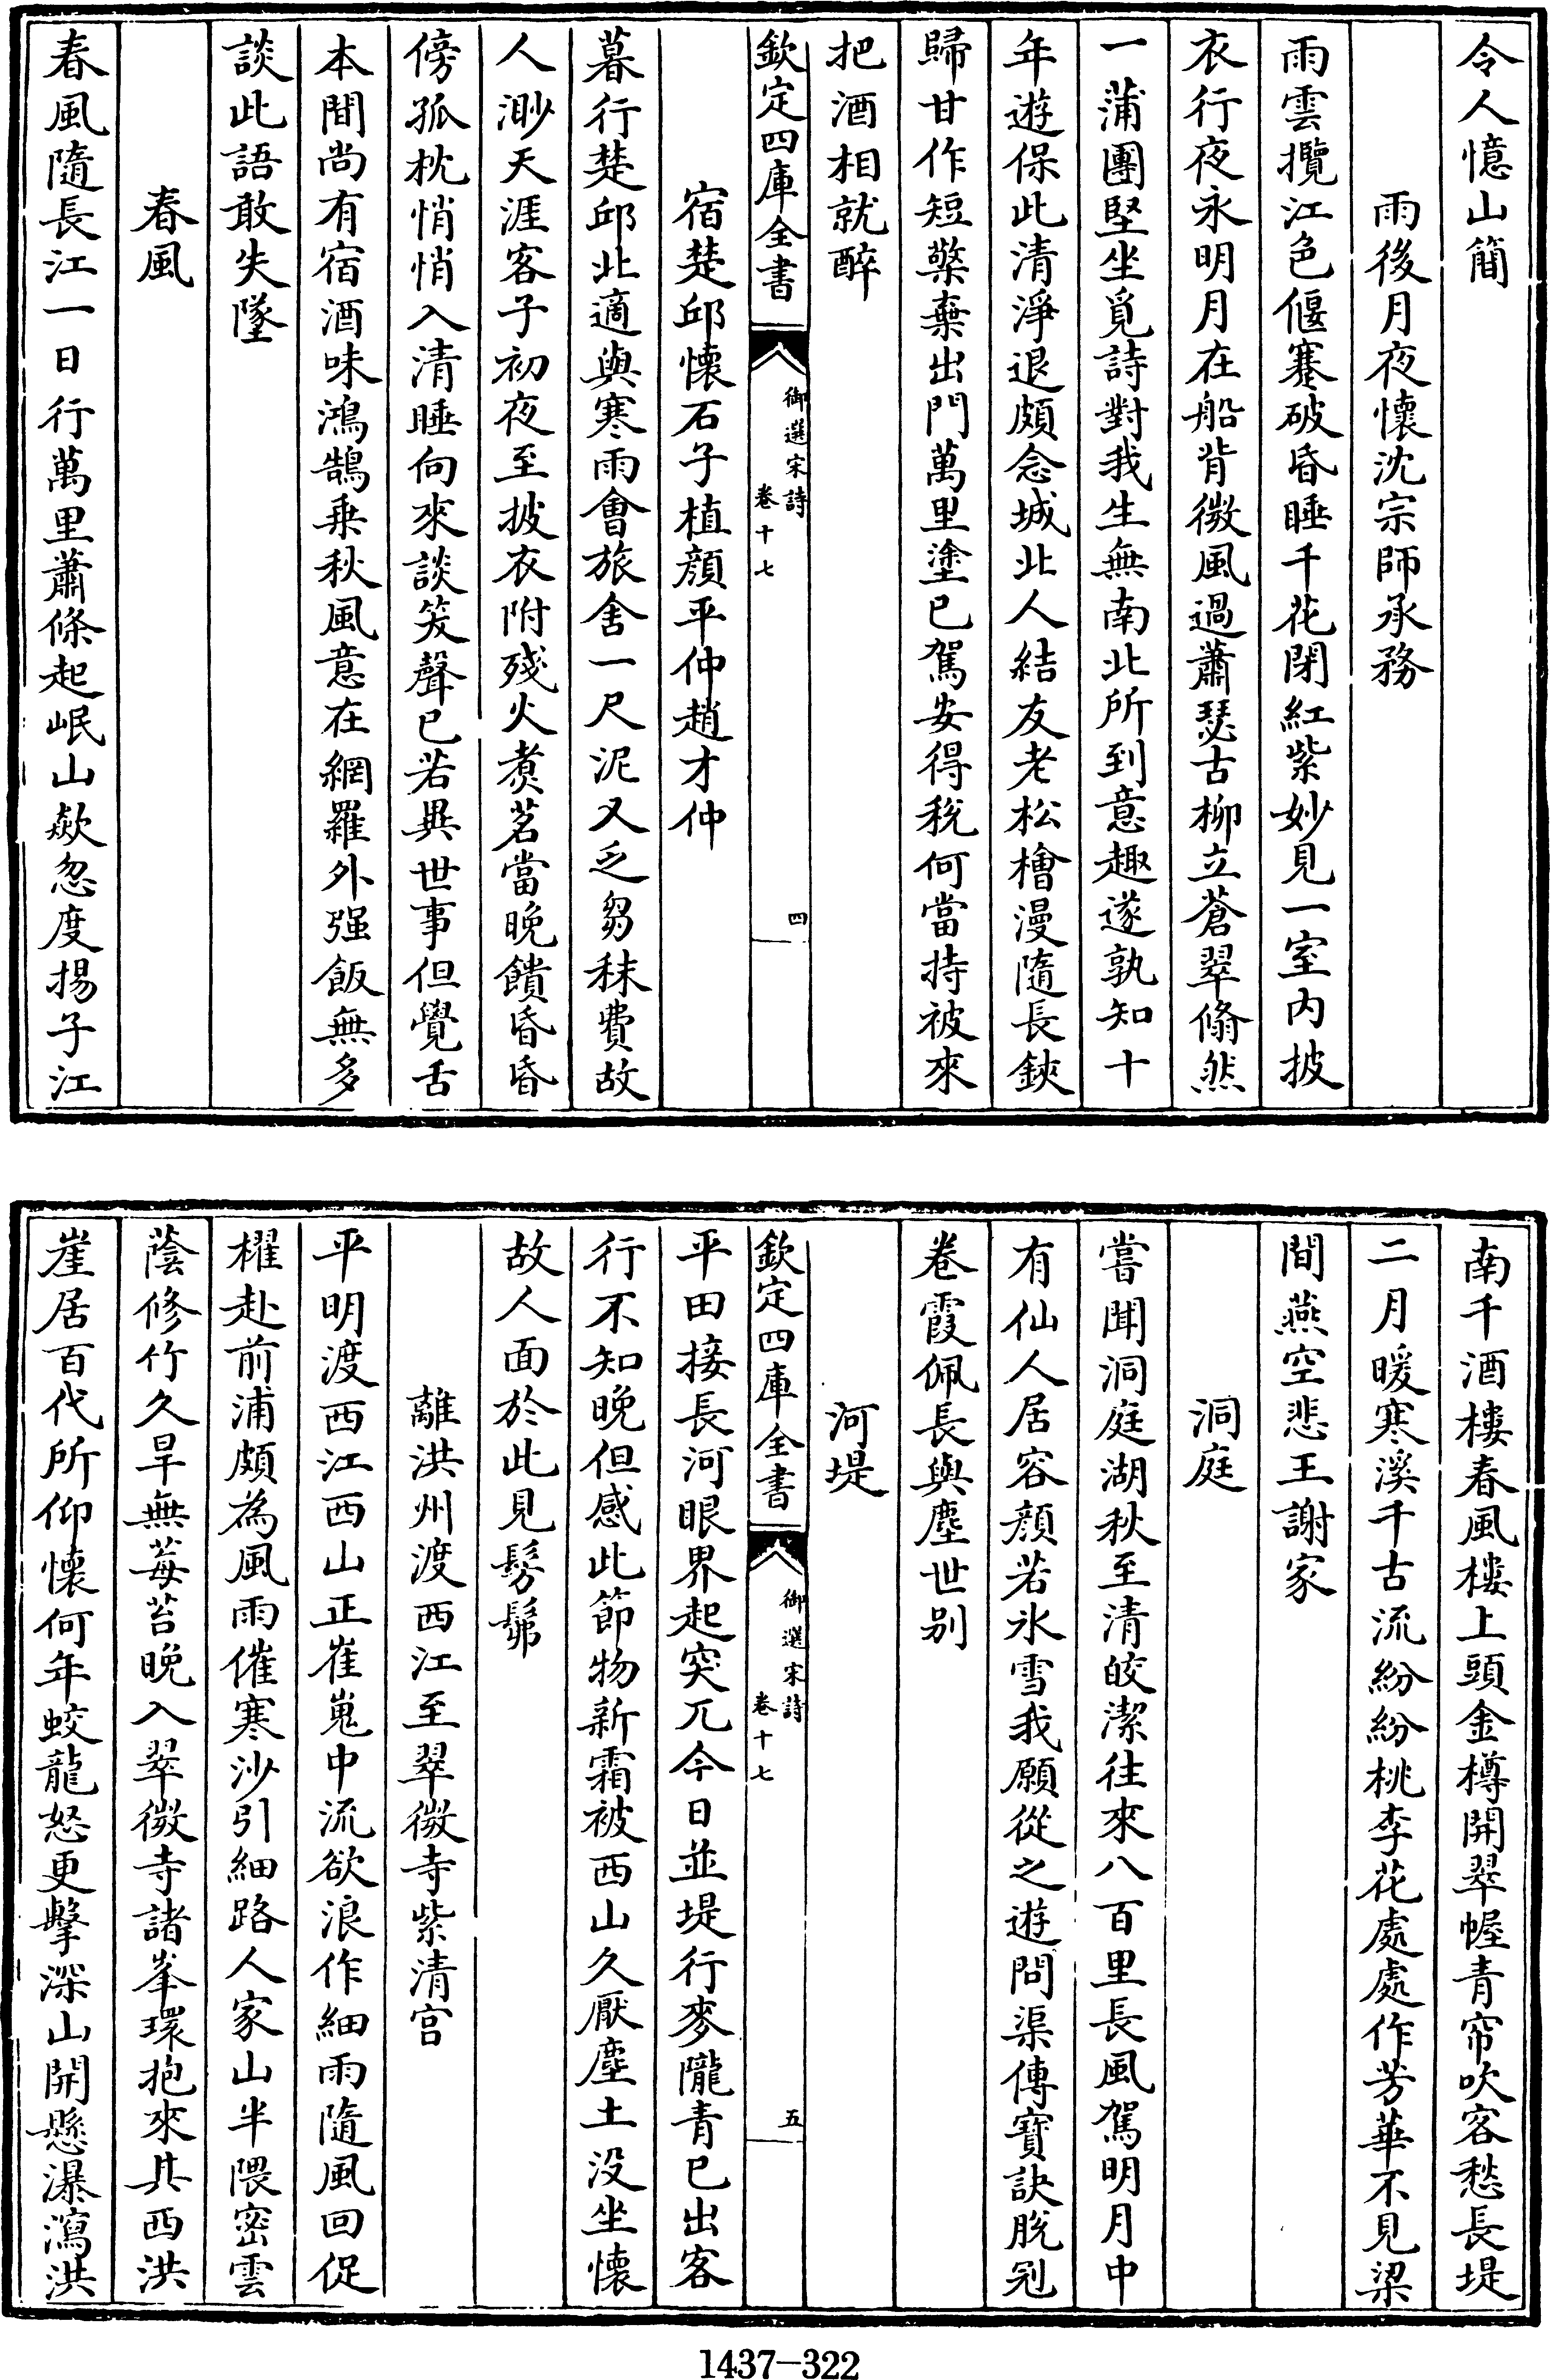 令人憶山簡
雨後月夜懷沈宗師承務
雨雲攬江色偃蹇破昏睡千花閉紅紫妙見一室内披
衣行夜永明月在船背微風過蕭瑟古柳立蒼翠翛然
一蒲團堅坐覓詩對我生無南北所到意趣遂孰知十
年遊保此清淨退頗念城北人結友老松檜漫隨長鋏
歸甘作短檠棄出門萬里塗已駕安得稅何當持被來
把酒相就醉
欽定四庫全書
御選宋詩
卷十七
四
宿楚邱懷石子植顔平仲趙才仲
暮行楚邱北適與寒雨會旅舍一尺泥又乏芻秣費故
人渺天涯客子初夜至披衣附殘火煑茗當晚饋昏昏
傍孤枕悄悄入清睡向來談笑聲已若異世事但覺舌
本間尚有宿酒味鴻鵠乗秋風意在網羅外强飯無多
談此語敢失墜
春風
春風隨長江一日行萬里蕭條起岷山歘忽度揚子江
南千酒樓春風樓上頭金樽開翠幄青帘吹客愁長堤
二月暖寒溪千古流紛紛桃李花處處作芳華不見梁
間燕空悲王謝家
洞庭
嘗聞洞庭湖秋至清皎潔往來八百里長風駕明月中
有仙人居容顔若氷雪我願從之遊問渠傳寶訣脱屣
卷霞佩長與塵世别
河堤
欽定四庫全書
御選宋詩
卷十七
五
平田接長河眼界起突兀今日並堤行麥隴青已出客
行不知晚但感此節物新霜被西山久厭塵土没坐懷
故人面於此見髣髴
離洪州渡西江至翠微寺紫清宫
平明渡西江西山正崔嵬中流欲浪作細雨隨風回促
櫂赴前浦頗為風雨催寒沙引細路人家山半隈密雲
蔭修竹久旱無莓苔晚入翠微寺諸峯環抱來其西洪
崖居百代所仰懷何年蛟龍怒更擊深山開懸瀑瀉洪
1437-322